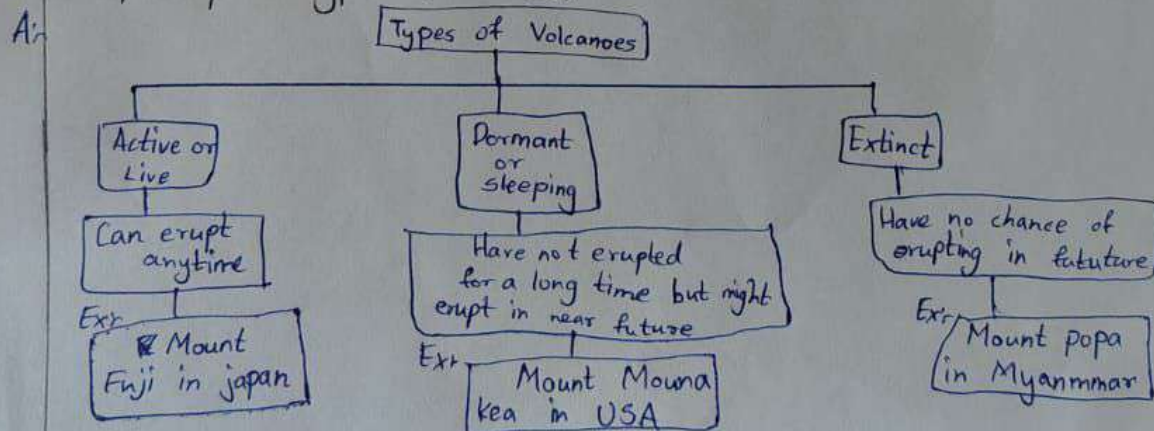 A:-
Types of Volcanoes
Active or
Live
Can erupt
anytime
Ex:-
Mount
Fuji in japan
Dormant
or
sleeping
Have not erupted
for a long time but might
erupt in near future
Ex:-
Mount Mouna
kea in USA
Extinct
Have no chance of
erupting in fututure
Ex:-
Mount popa
in Myanmmar